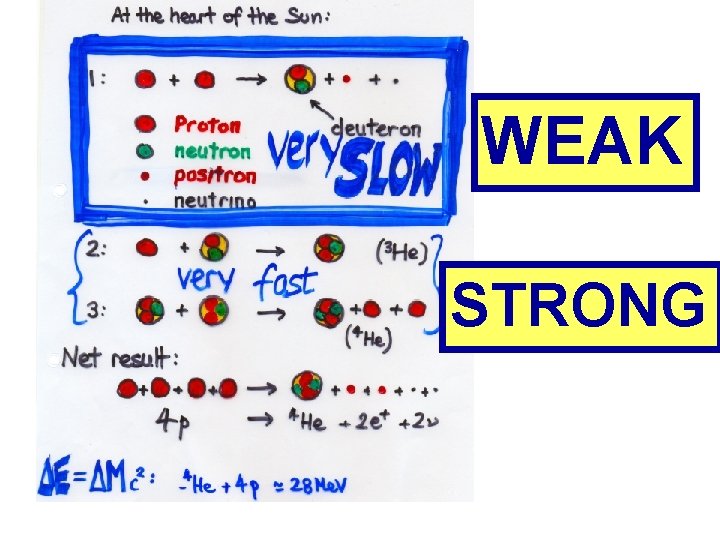 At the heart of the Sun:
1: + → + • + •
deuteron
Proton
neutron
positron
neutrino
very SLOW
WEAK
2: + → (³He)
very fast
3: + → + +
(⁴He)
STRONG
Net result:
+ + + → + • + • + • + •
4p → ⁴He + 2e⁺ + 2ν
ΔE = ΔMc²: -⁴He + 4p ≃ 28 MeV